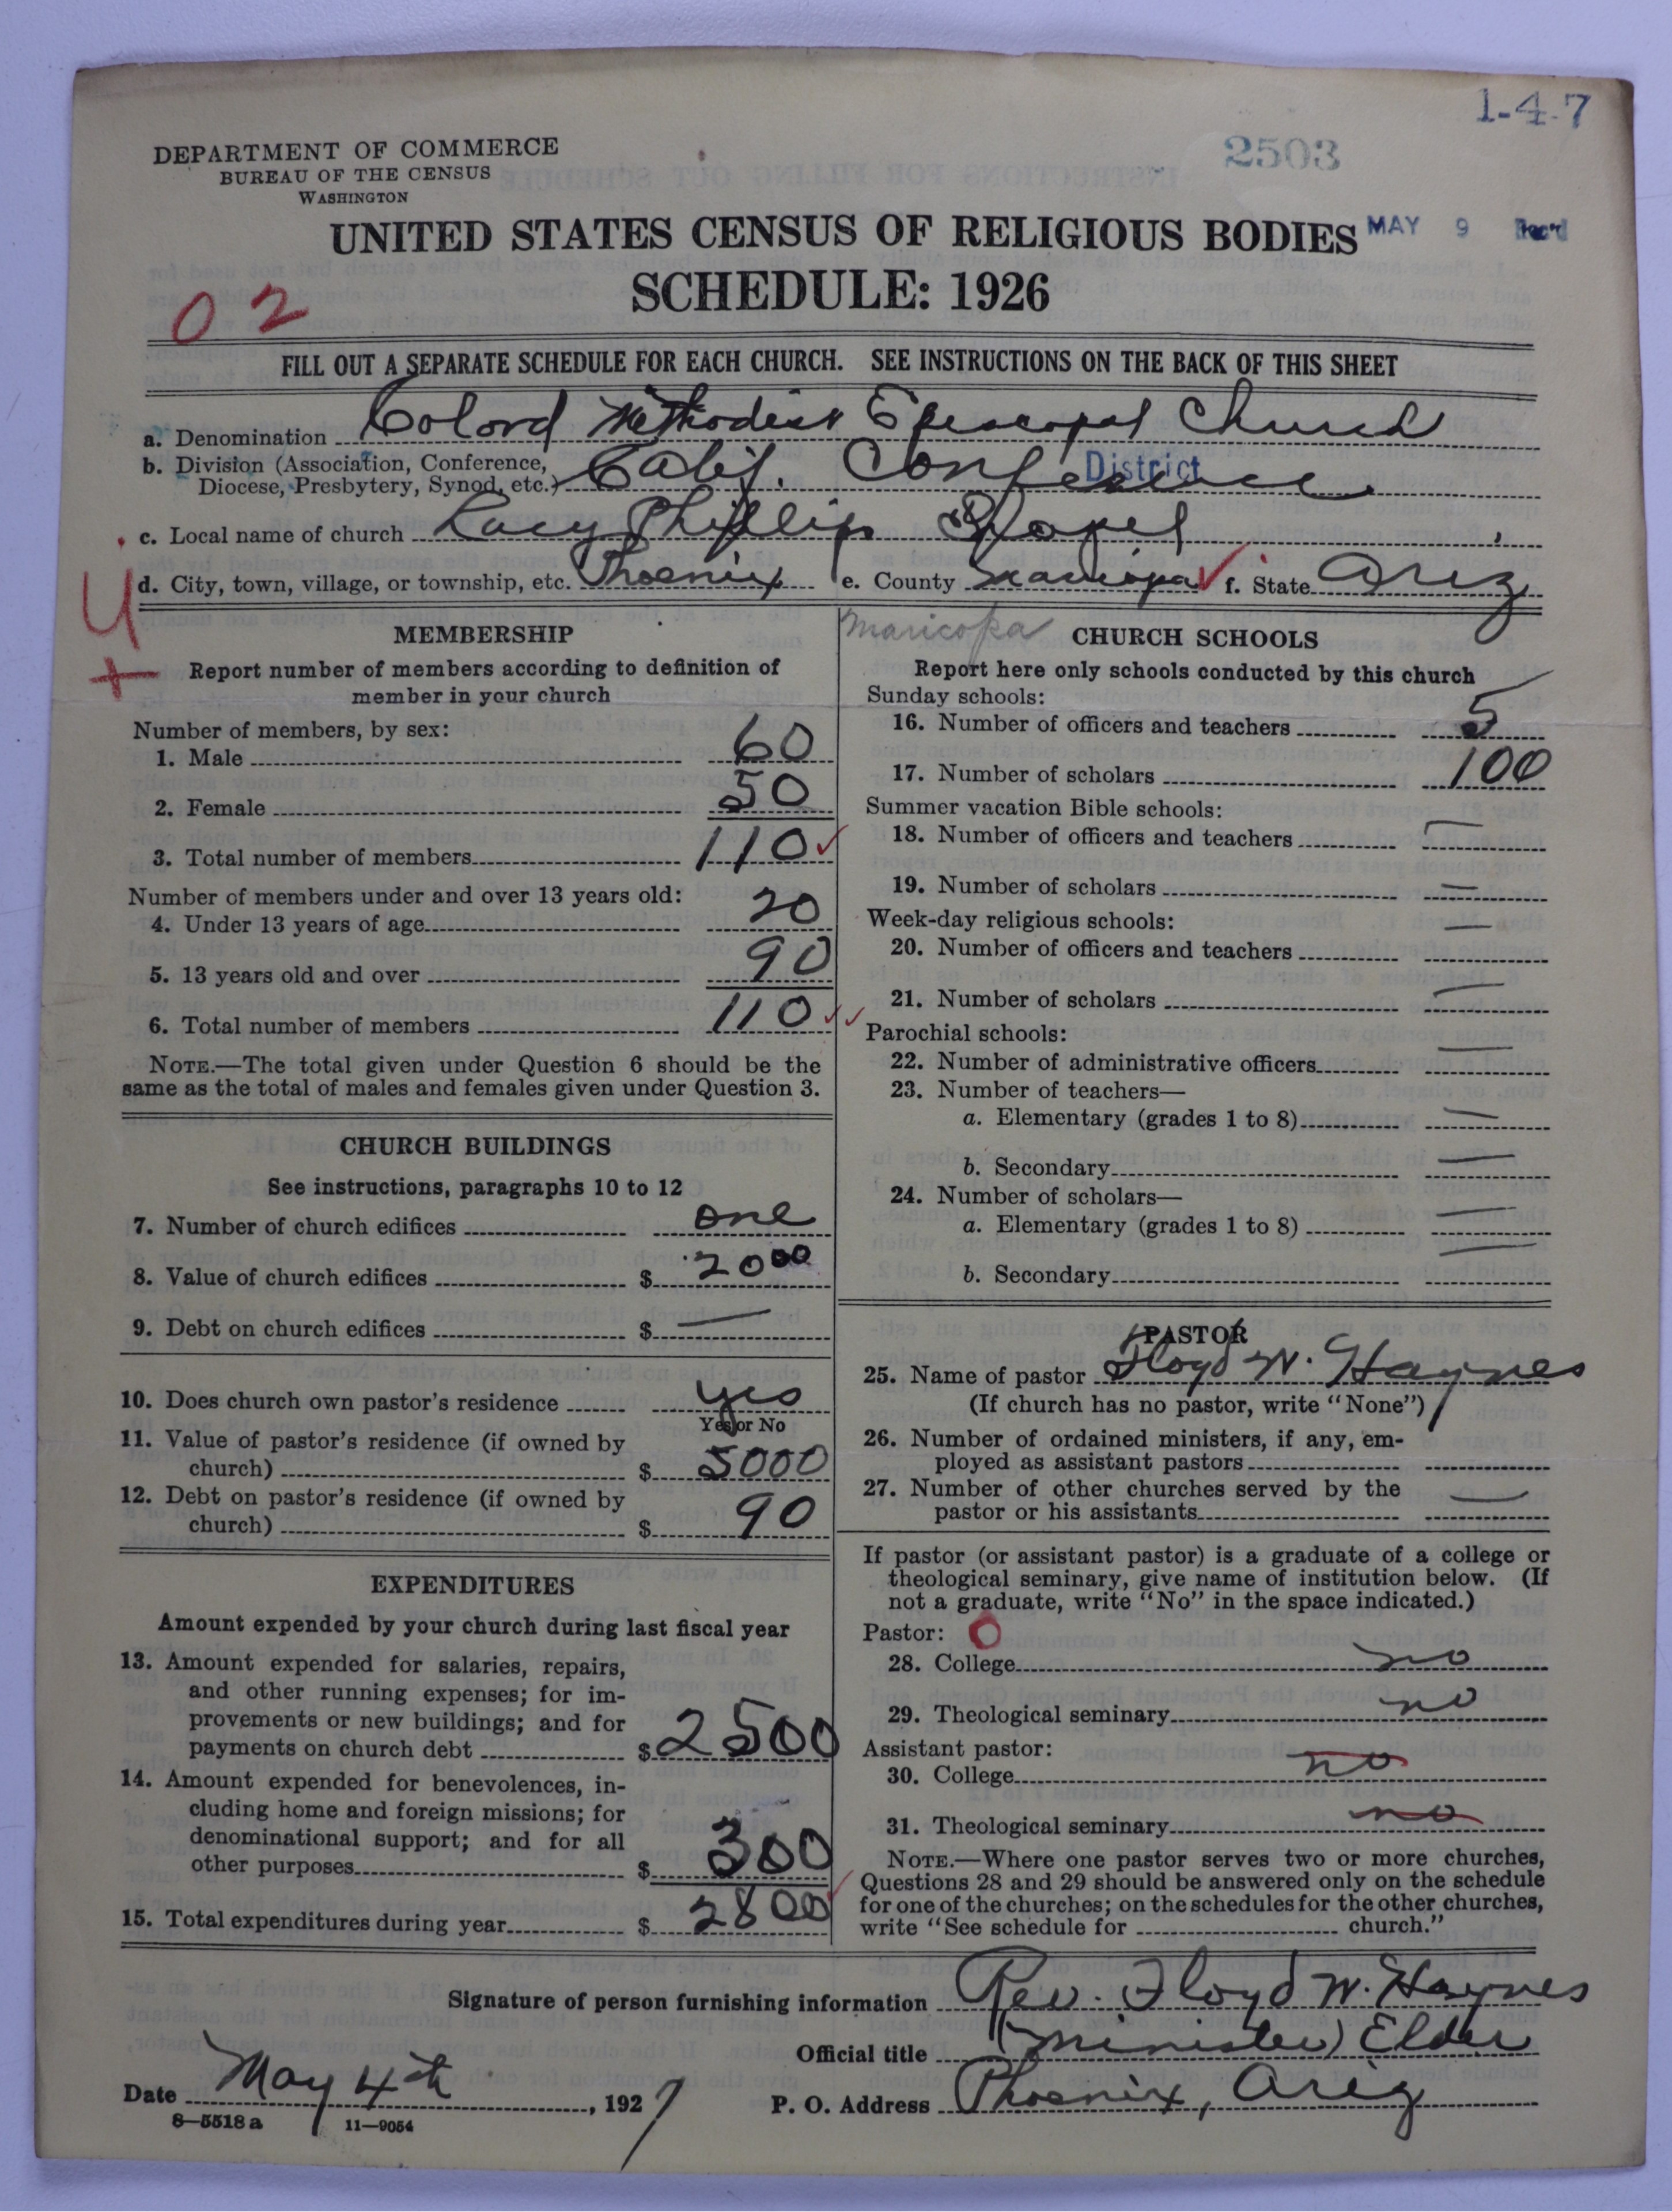 1-4-7
2503
DEPARTMENT OF COMMERCE
BUREAU OF THE CENSUS
WASHINGTON
UNITED STATES CENSUS OF RELIGIOUS BODIES MAY 9 Rec'd
SCHEDULE: 1926
02
FILL OUT A SEPARATE SCHEDULE FOR EACH CHURCH. SEE INSTRUCTIONS ON THE BACK OF THIS SHEET
a. Denomination Colord Methodist Episcopal Church
b. Division (Association, Conference, Diocese, Presbytery, Synod, etc.) Calif. Conference District
c. Local name of church Lucy Phillips Chapel
d. City, town, village, or township, etc. Phoenix e. County Maricopa f. State Ariz
Maricopa
MEMBERSHIP
Report number of members according to definition of
member in your church
Number of members, by sex:
1. Male 60
2. Female 50
3. Total number of members 110
Number of members under and over 13 years old:
4. Under 13 years of age 20
5. 13 years old and over 90
6. Total number of members 110
NOTE.—The total given under Question 6 should be the
same as the total of males and females given under Question 3.
CHURCH BUILDINGS
See instructions, paragraphs 10 to 12
7. Number of church edifices one
8. Value of church edifices $ 2000
9. Debt on church edifices $ —
10. Does church own pastor's residence yes
Yes or No
11. Value of pastor's residence (if owned by
church) $ 5000
12. Debt on pastor's residence (if owned by
church) $ 90
EXPENDITURES
Amount expended by your church during last fiscal year
13. Amount expended for salaries, repairs,
and other running expenses; for im-
provements or new buildings; and for
payments on church debt $ 2500
14. Amount expended for benevolences, in-
cluding home and foreign missions; for
denominational support; and for all
other purposes $ 300
15. Total expenditures during year $ 2800
CHURCH SCHOOLS
Report here only schools conducted by this church
Sunday schools:
16. Number of officers and teachers 5
17. Number of scholars 100
Summer vacation Bible schools:
18. Number of officers and teachers —
19. Number of scholars —
Week-day religious schools:
20. Number of officers and teachers —
21. Number of scholars —
Parochial schools:
22. Number of administrative officers —
23. Number of teachers—
a. Elementary (grades 1 to 8) —
b. Secondary —
24. Number of scholars—
a. Elementary (grades 1 to 8) —
b. Secondary —
PASTOR
25. Name of pastor Floyd W. Haynes
(If church has no pastor, write "None")
26. Number of ordained ministers, if any, em-
ployed as assistant pastors
27. Number of other churches served by the
pastor or his assistants —
If pastor (or assistant pastor) is a graduate of a college or
theological seminary, give name of institution below. (If
not a graduate, write "No" in the space indicated.)
Pastor: 0
28. College no
29. Theological seminary no
Assistant pastor:
30. College no
31. Theological seminary no
NOTE.—Where one pastor serves two or more churches,
Questions 28 and 29 should be answered only on the schedule
for one of the churches; on the schedules for the other churches,
write "See schedule for church."
Signature of person furnishing information Rev. Floyd W. Haynes
Official title (Minister) Elder
Date May 4th, 1927 P. O. Address Phoenix, Ariz
8—5518a 11—9054